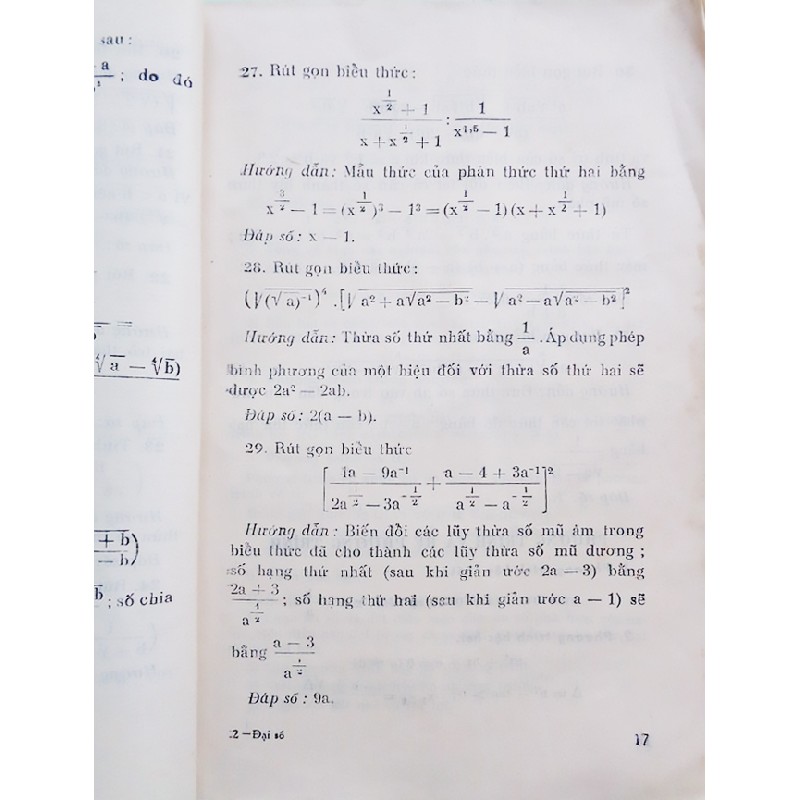 sau :
; do đó
a
27. Rút gọn biểu thức :
\frac{x^{\frac{1}{2}} + 1}{x + x^{\frac{1}{2}} + 1} : \frac{1}{x^{1,5} − 1}
Hướng dẫn: Mẫu thức của phân thức thứ hai bằng
x^{\frac{3}{2}} − 1 = (x^{\frac{1}{2}})^3 − 1^3 = (x^{\frac{1}{2}} − 1) (x + x^{\frac{1}{2}} + 1)
Đáp số: x − 1.
28. Rút gọn biểu thức :
[√a² + a√a² − b² − √a² − a√a² − b²]²
√a − ∜b)
Hướng dẫn: Thừa số thứ nhất bằng \frac{1}{a}. Áp dụng phép
bình phương của một hiệu đối với thừa số thứ hai sẽ
được 2a² − 2ab.
Đáp số: 2(a − b).
29. Rút gọn biểu thức
[\frac{4a − 9a^{-1}}{2a^{\frac{1}{2}} − 3a^{-\frac{1}{2}}} + \frac{a − 4 + 3a^{-1}}{a^{\frac{1}{2}} − a^{-\frac{1}{2}}}]²
Hướng dẫn: Biến đổi các lũy thừa số mũ âm trong
biểu thức đã cho thành các lũy thừa số mũ dương ;
+ b
− b
số hạng thứ nhất (sau khi giản ước 2a − 3) bằng
\frac{2a + 3}{a^{\frac{1}{2}}}; số hạng thứ hai (sau khi giản ước a − 1) sẽ
b ; số chia
bằng \frac{a − 3}{a^{\frac{1}{2}}}
Đáp số : 9a.
2 — Đại số
17